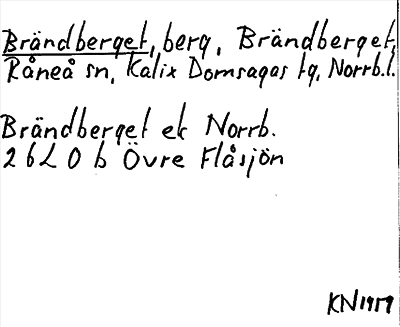 Brändberget, berg, Brändberget,
Råneå sn, Kalix Domsagas tg, Norrb.l.
Brändberget ek Norrb.
26L 0 b Övre Flåsjön
KN1959